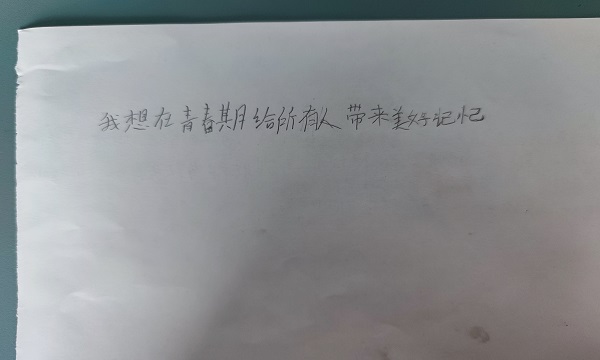 我想在青春期给所有人带来美好记忆